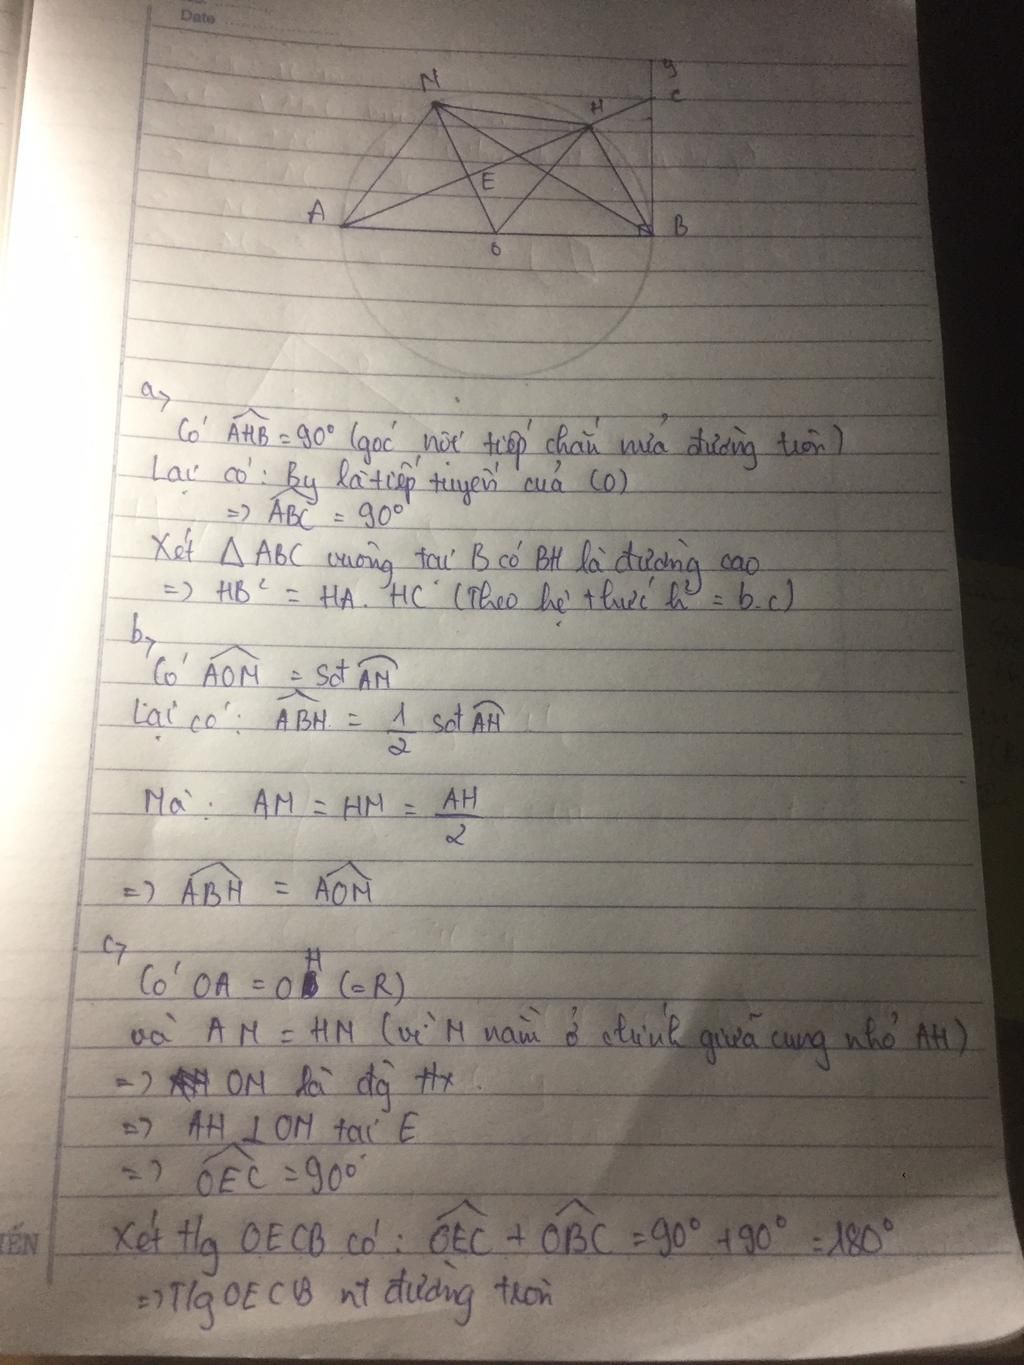 Date
y
C
M
H
E
A
B
O
a,
Có AHB = 90° (góc nội tiếp chắn nửa đường tròn)
Lại có: By là tiếp tuyến của (O)
=> ABC = 90°
Xét Δ ABC vuông tại B có BH là đường cao
=> HB² = HA. HC (Theo hệ thức h² = b.c)
b,
Có AOM = sđ AM
Lại có: ABH = 1/2 sđ AH
Mà: AM = HM = AH/2
=> ABH = AOM
c,
Có OA = OH (=R)
và AM = HM (vì M nằm ở chính giữa cung nhỏ AH)
=> OM là đg ttx
=> AH ⊥ OM tại E
=> OEC = 90°
Xét t/g OECB có: OEC + OBC = 90° + 90° = 180°
=> T/g OECB nt đường tròn
IẾN